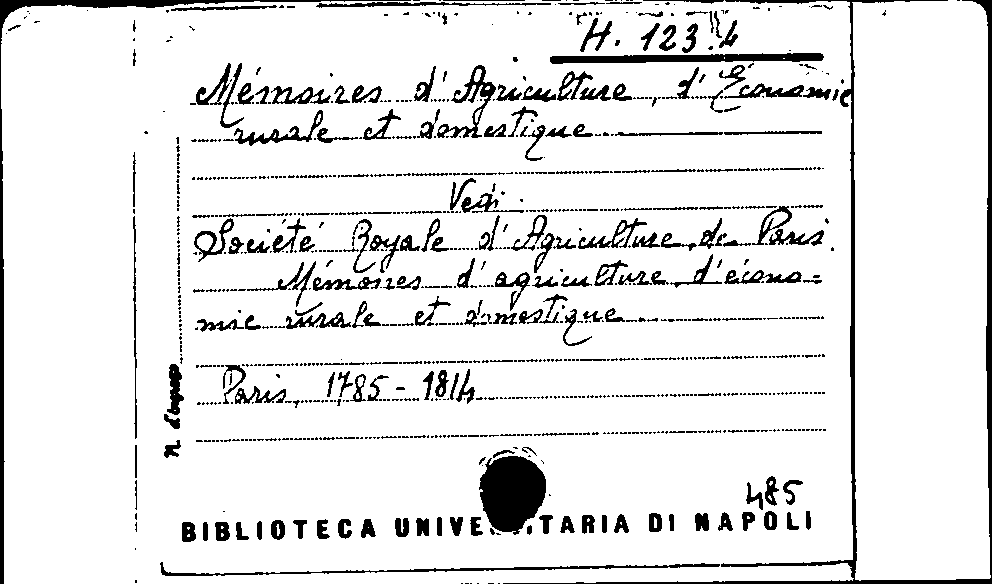 H. 123.4
Mémoires d'Agriculture, d'Économie
rurale et domestique...
Vedi.
Société Royale d'Agriculture de Paris.
Mémoires d'agriculture, d'écono=
mie rurale et domestique...
Paris, 1785-1814
N. d'ingresso
485
BIBLIOTECA UNIVE TARIA DI NAPOLI